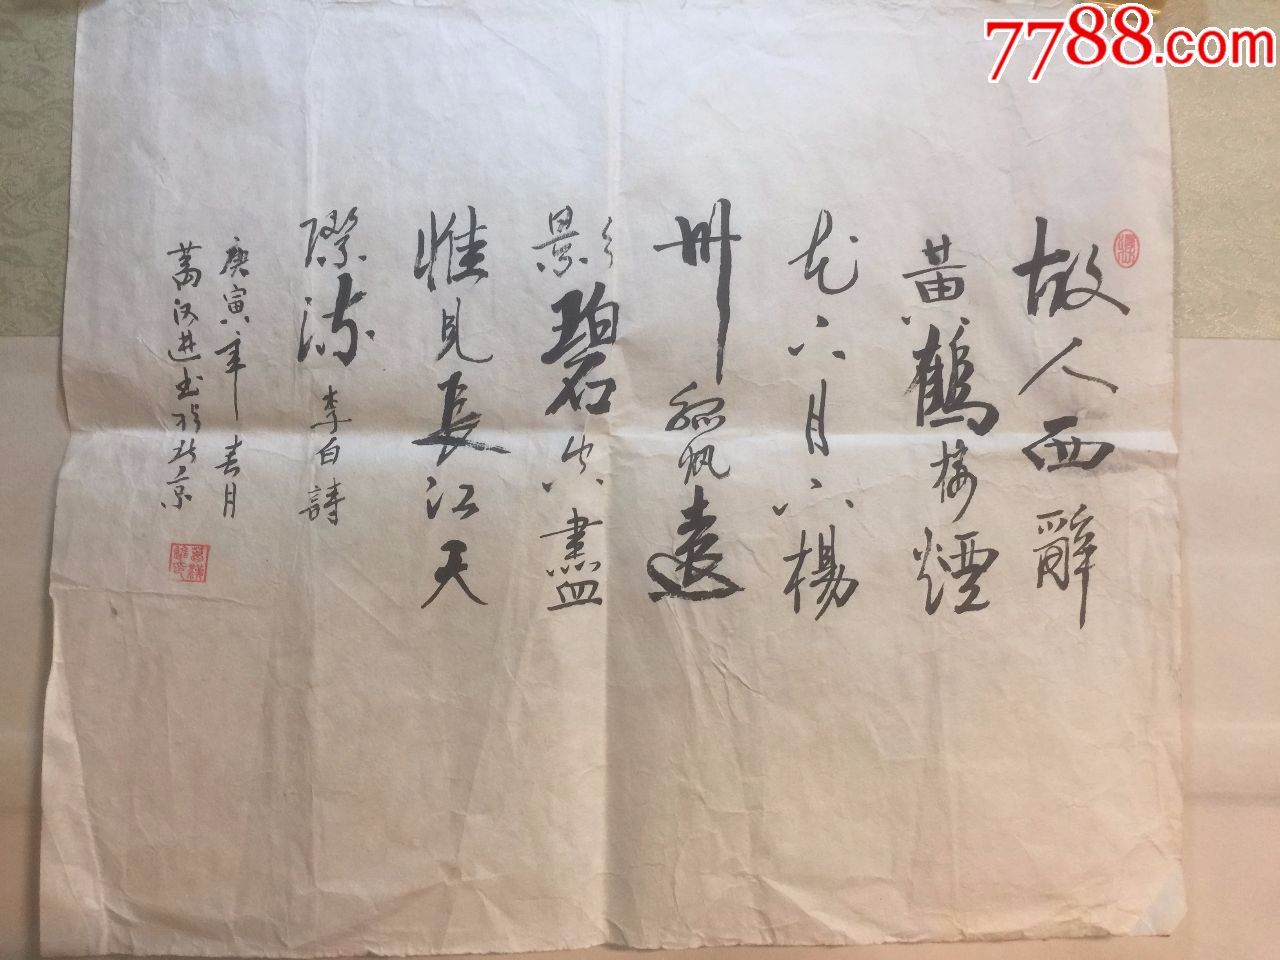 7788.com
故人西辭
黃鶴楼煙
花六月下楊
州孤帆遠
影碧空盡
惟見長江天
際流 李白詩
庚寅年春月
葛汉进书於北京